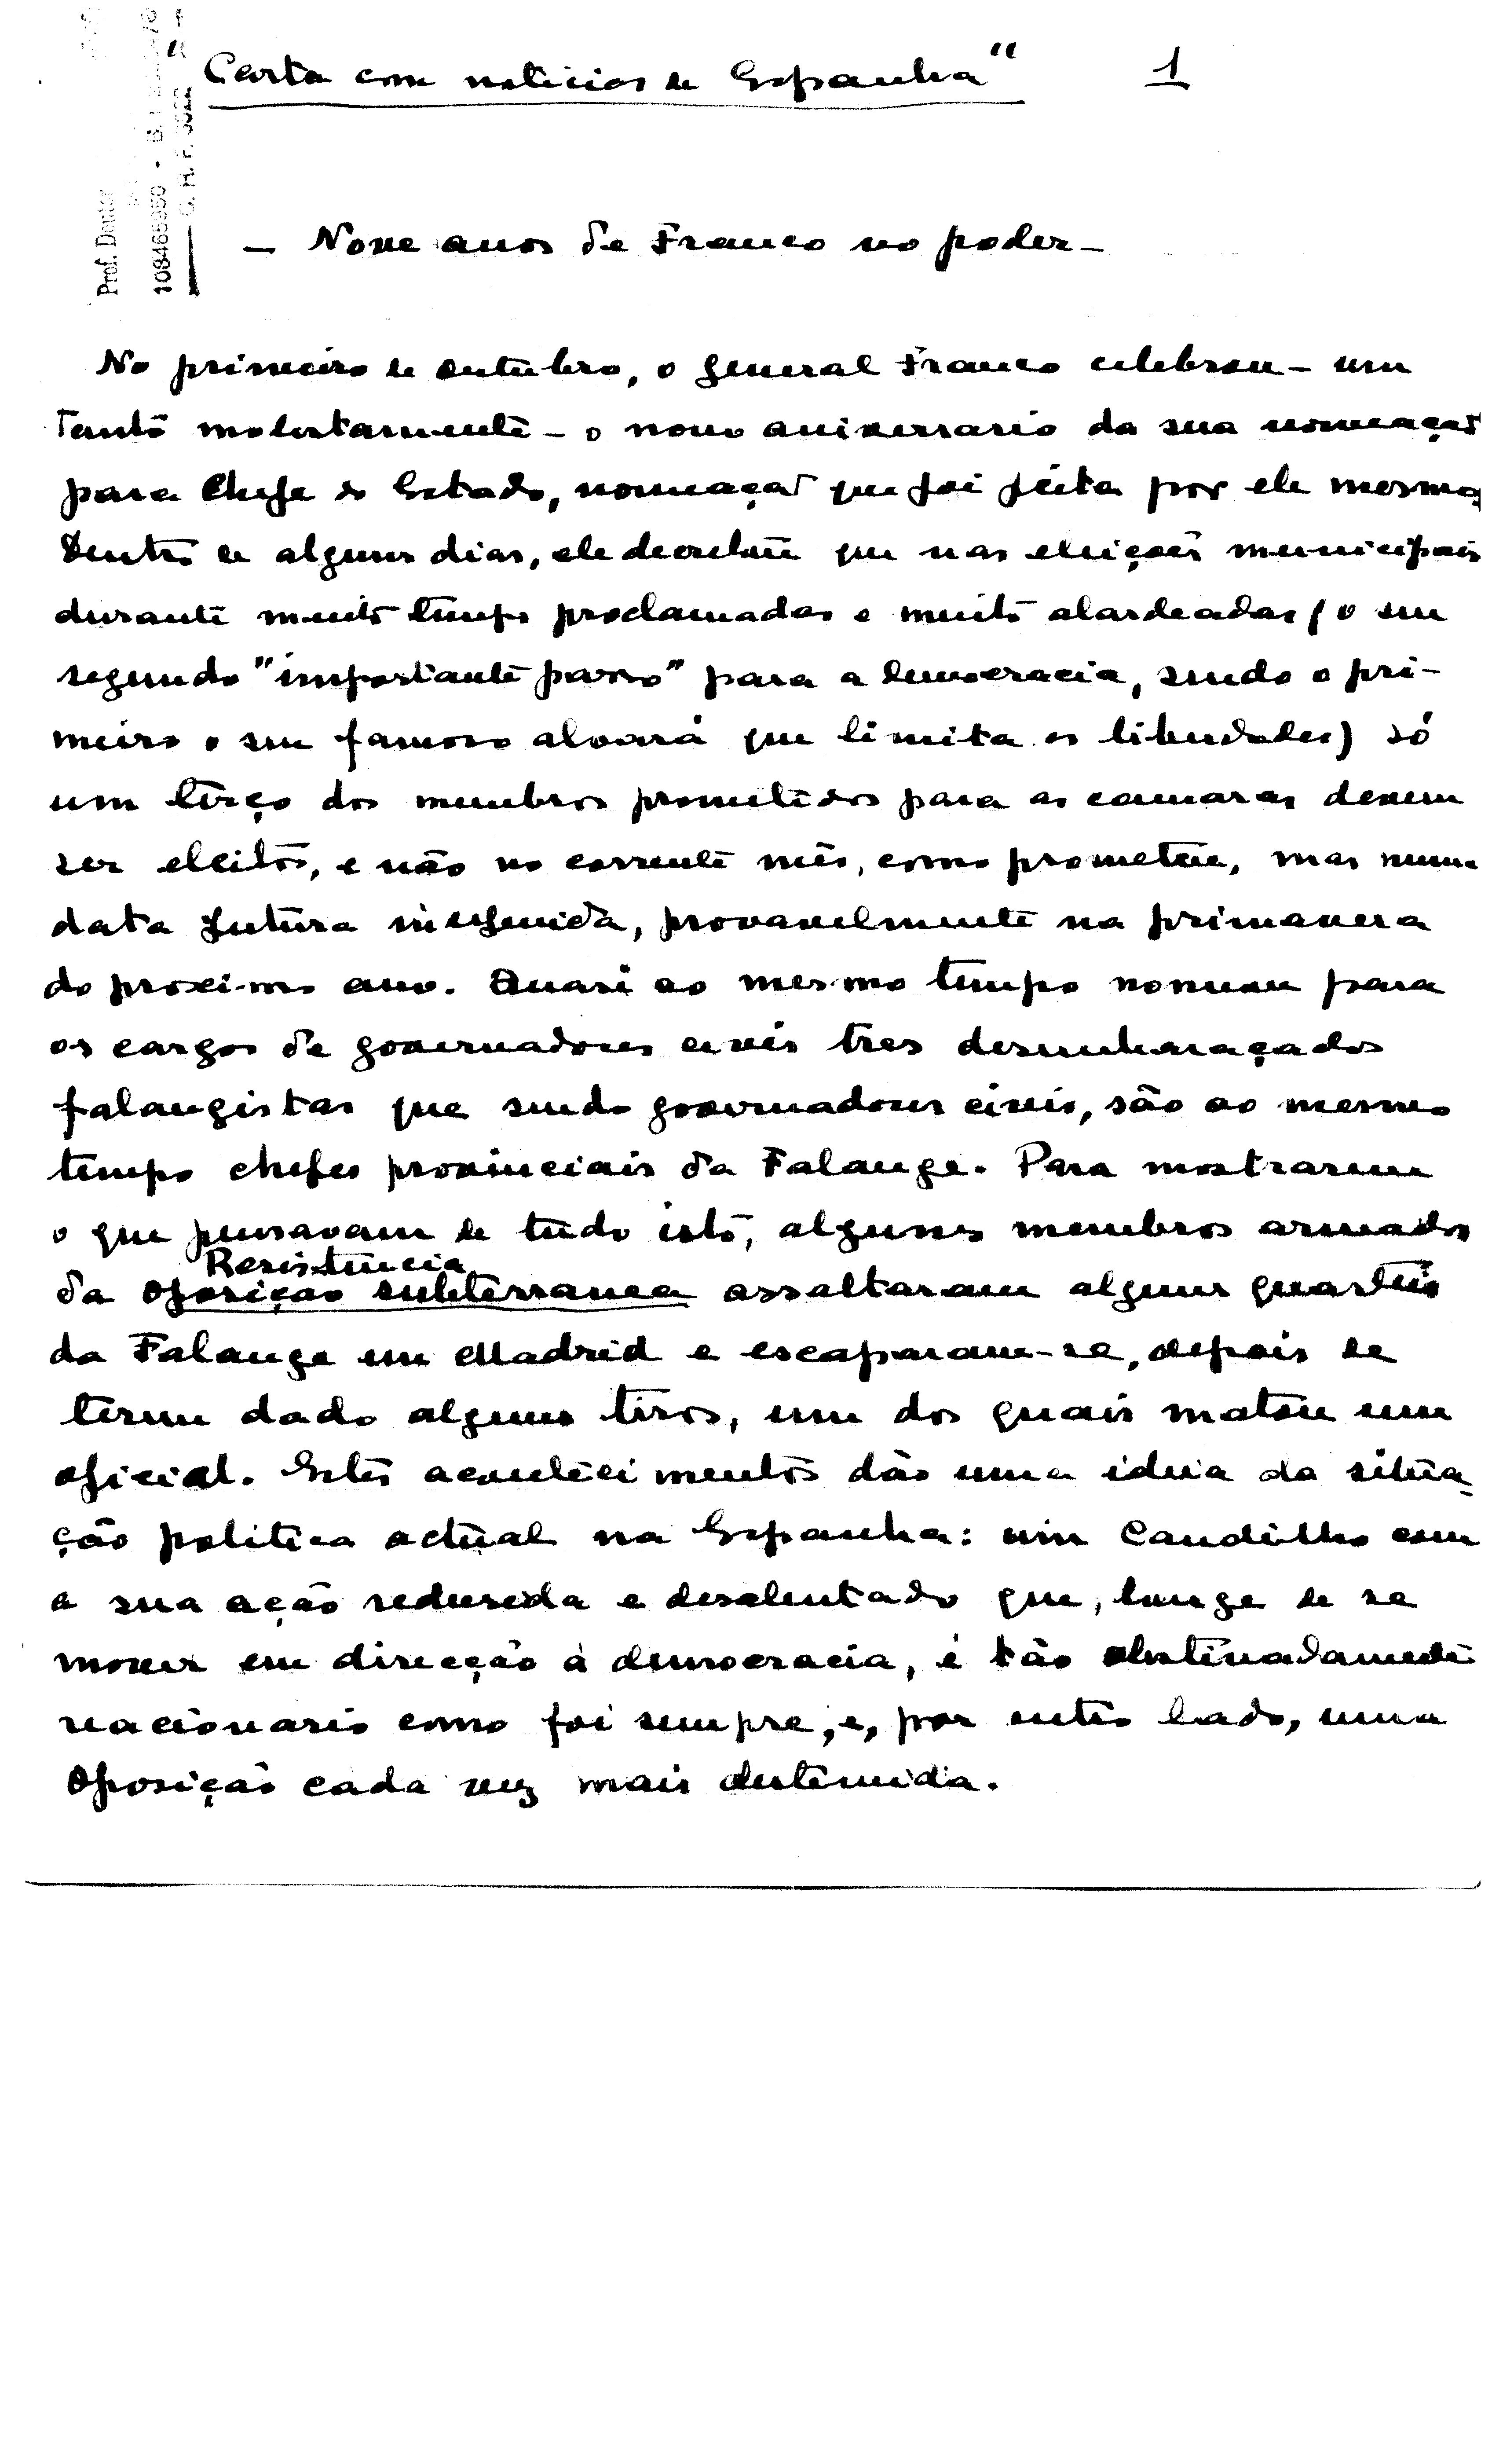 "Carta com noticias de Espanha" 1
Prof. Doutor
108465950 - B.I.
C. R. F.
— Nove anos de Franco no poder —
No primeiro de outubro, o general Franco celebrou - um
tanto molestamente - o nono aniversario da sua nomeação
para Chefe do Estado, nomeação que foi feita por ele mesmo,
Dentro de alguns dias, ele decretou que nas eleições municipais
durante muito tempo proclamadas e muito alardeadas (o seu
segundo "importante passo" para a democracia, sendo o pri-
meiro o seu famoso alvará que limita as liberdades) só
um terço dos membros prometidos para as camaras devem
ser eleitos, e não no corrente mês, como prometeu, mas numa
data futura indefenida, provavelmente na primavera
do proximo ano. Quasi ao mesmo tempo nomeou para
os cargos de governadores civis tres desembaraçados
falangistas que sendo governadores civis, são ao mesmo
tempo chefes provinciais da Falange. Para mostrarem
o que pensavam de tudo isto, alguns membros armados
Resistencia
da oposição subterranea assaltaram alguns quarteis
da Falange em Madrid e escaparam-se, depois de
terem dado alguns tiros, um dos quais matou um
oficial. Estes acontecimentos dão uma ideia da situa-
ção politica actual na Espanha: um Caudilho com
a sua ação reduzida e desalentado que, longe de se
mover em direcção á democracia, é tão obstinadamente
reacionario como foi sempre, e, por outro lado, uma
oposição cada vez mais destemida.